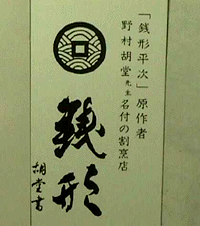 「銭形平次」原作者
野村胡堂先生名付の割烹店
銭形
胡堂書